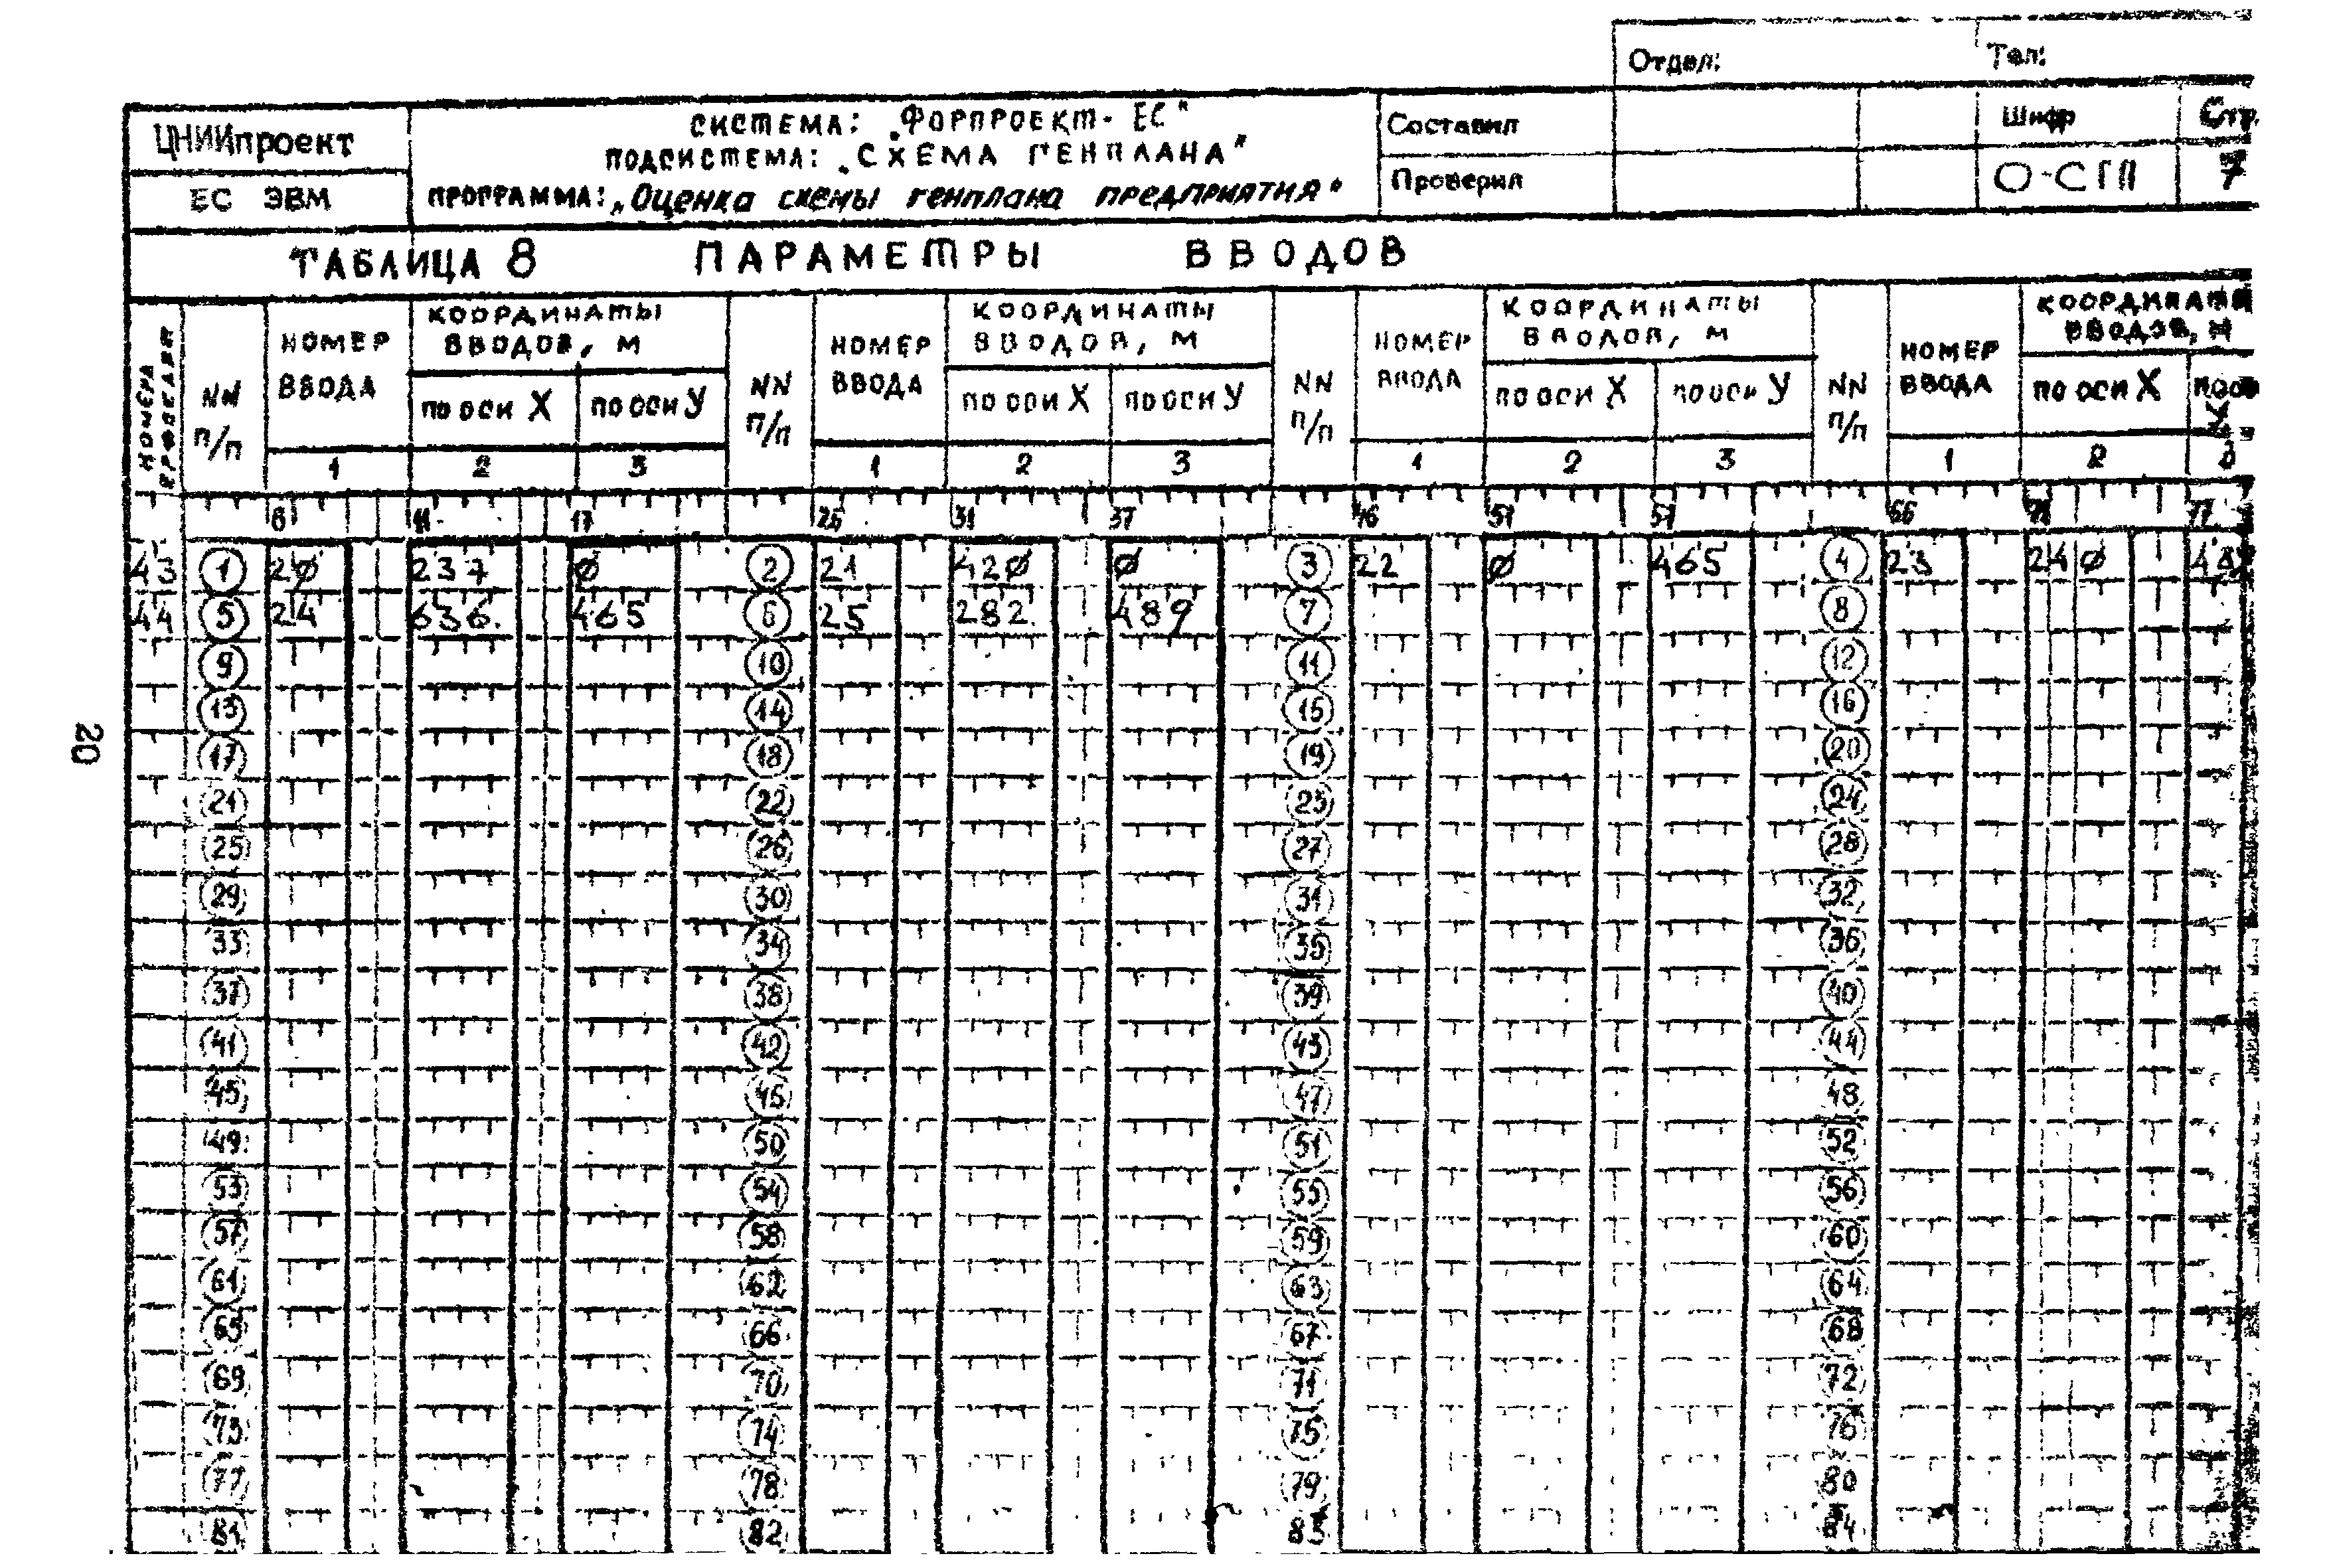 Отдел: Тел:
ЦНИИпроект СИСТЕМА: „ФОРПРОЕКТ- ЕС" Составил Шифр Стр.
ПОДСИСТЕМА: „СХЕМА ГЕНПЛАНА"
ЕС ЭВМ ПРОГРАММА: „Оценка схемы генплана предприятия" Проверил О-СГП 7
ТАБЛИЦА 8 ПАРАМЕТРЫ ВВОДОВ
НОМЕРА ПЕРФОКАРТ NN п/п НОМЕР ВВОДА КООРДИНАТЫ ВВОДОВ, М NN п/п НОМЕР ВВОДА КООРДИНАТЫ ВВОДОВ, М NN п/п НОМЕР ВВОДА КООРДИНАТЫ ВВОДОВ, М NN п/п НОМЕР ВВОДА КООРДИНАТЫ ВВОДОВ, М
по оси X по оси У по оси X по оси У по оси X по оси У по оси X по оси У
1 2 3 1 2 3 1 2 3 1 2 3
6 11 17 26 31 37 46 51 57 66 71 77
43 1 20 237 0 2 21 420 0 3 22 0 465 4 23 240
44 5 24 636. 465 6 25 282. 489 7 8
9 10 11 12
13 14 15 16
17 18 19 20
21 22 23 24
25 26 27 28
29 30 31 32
33 34 35 36
37 38 39 40
41 42 43 44
45 46 47 48
49 50 51 52
53 54 55 56
57 58 59 60
61 62 63 64
65 66 67 68
69 70 71 72
73 74 75 76
77 78 79 80
81 82 83 84
20